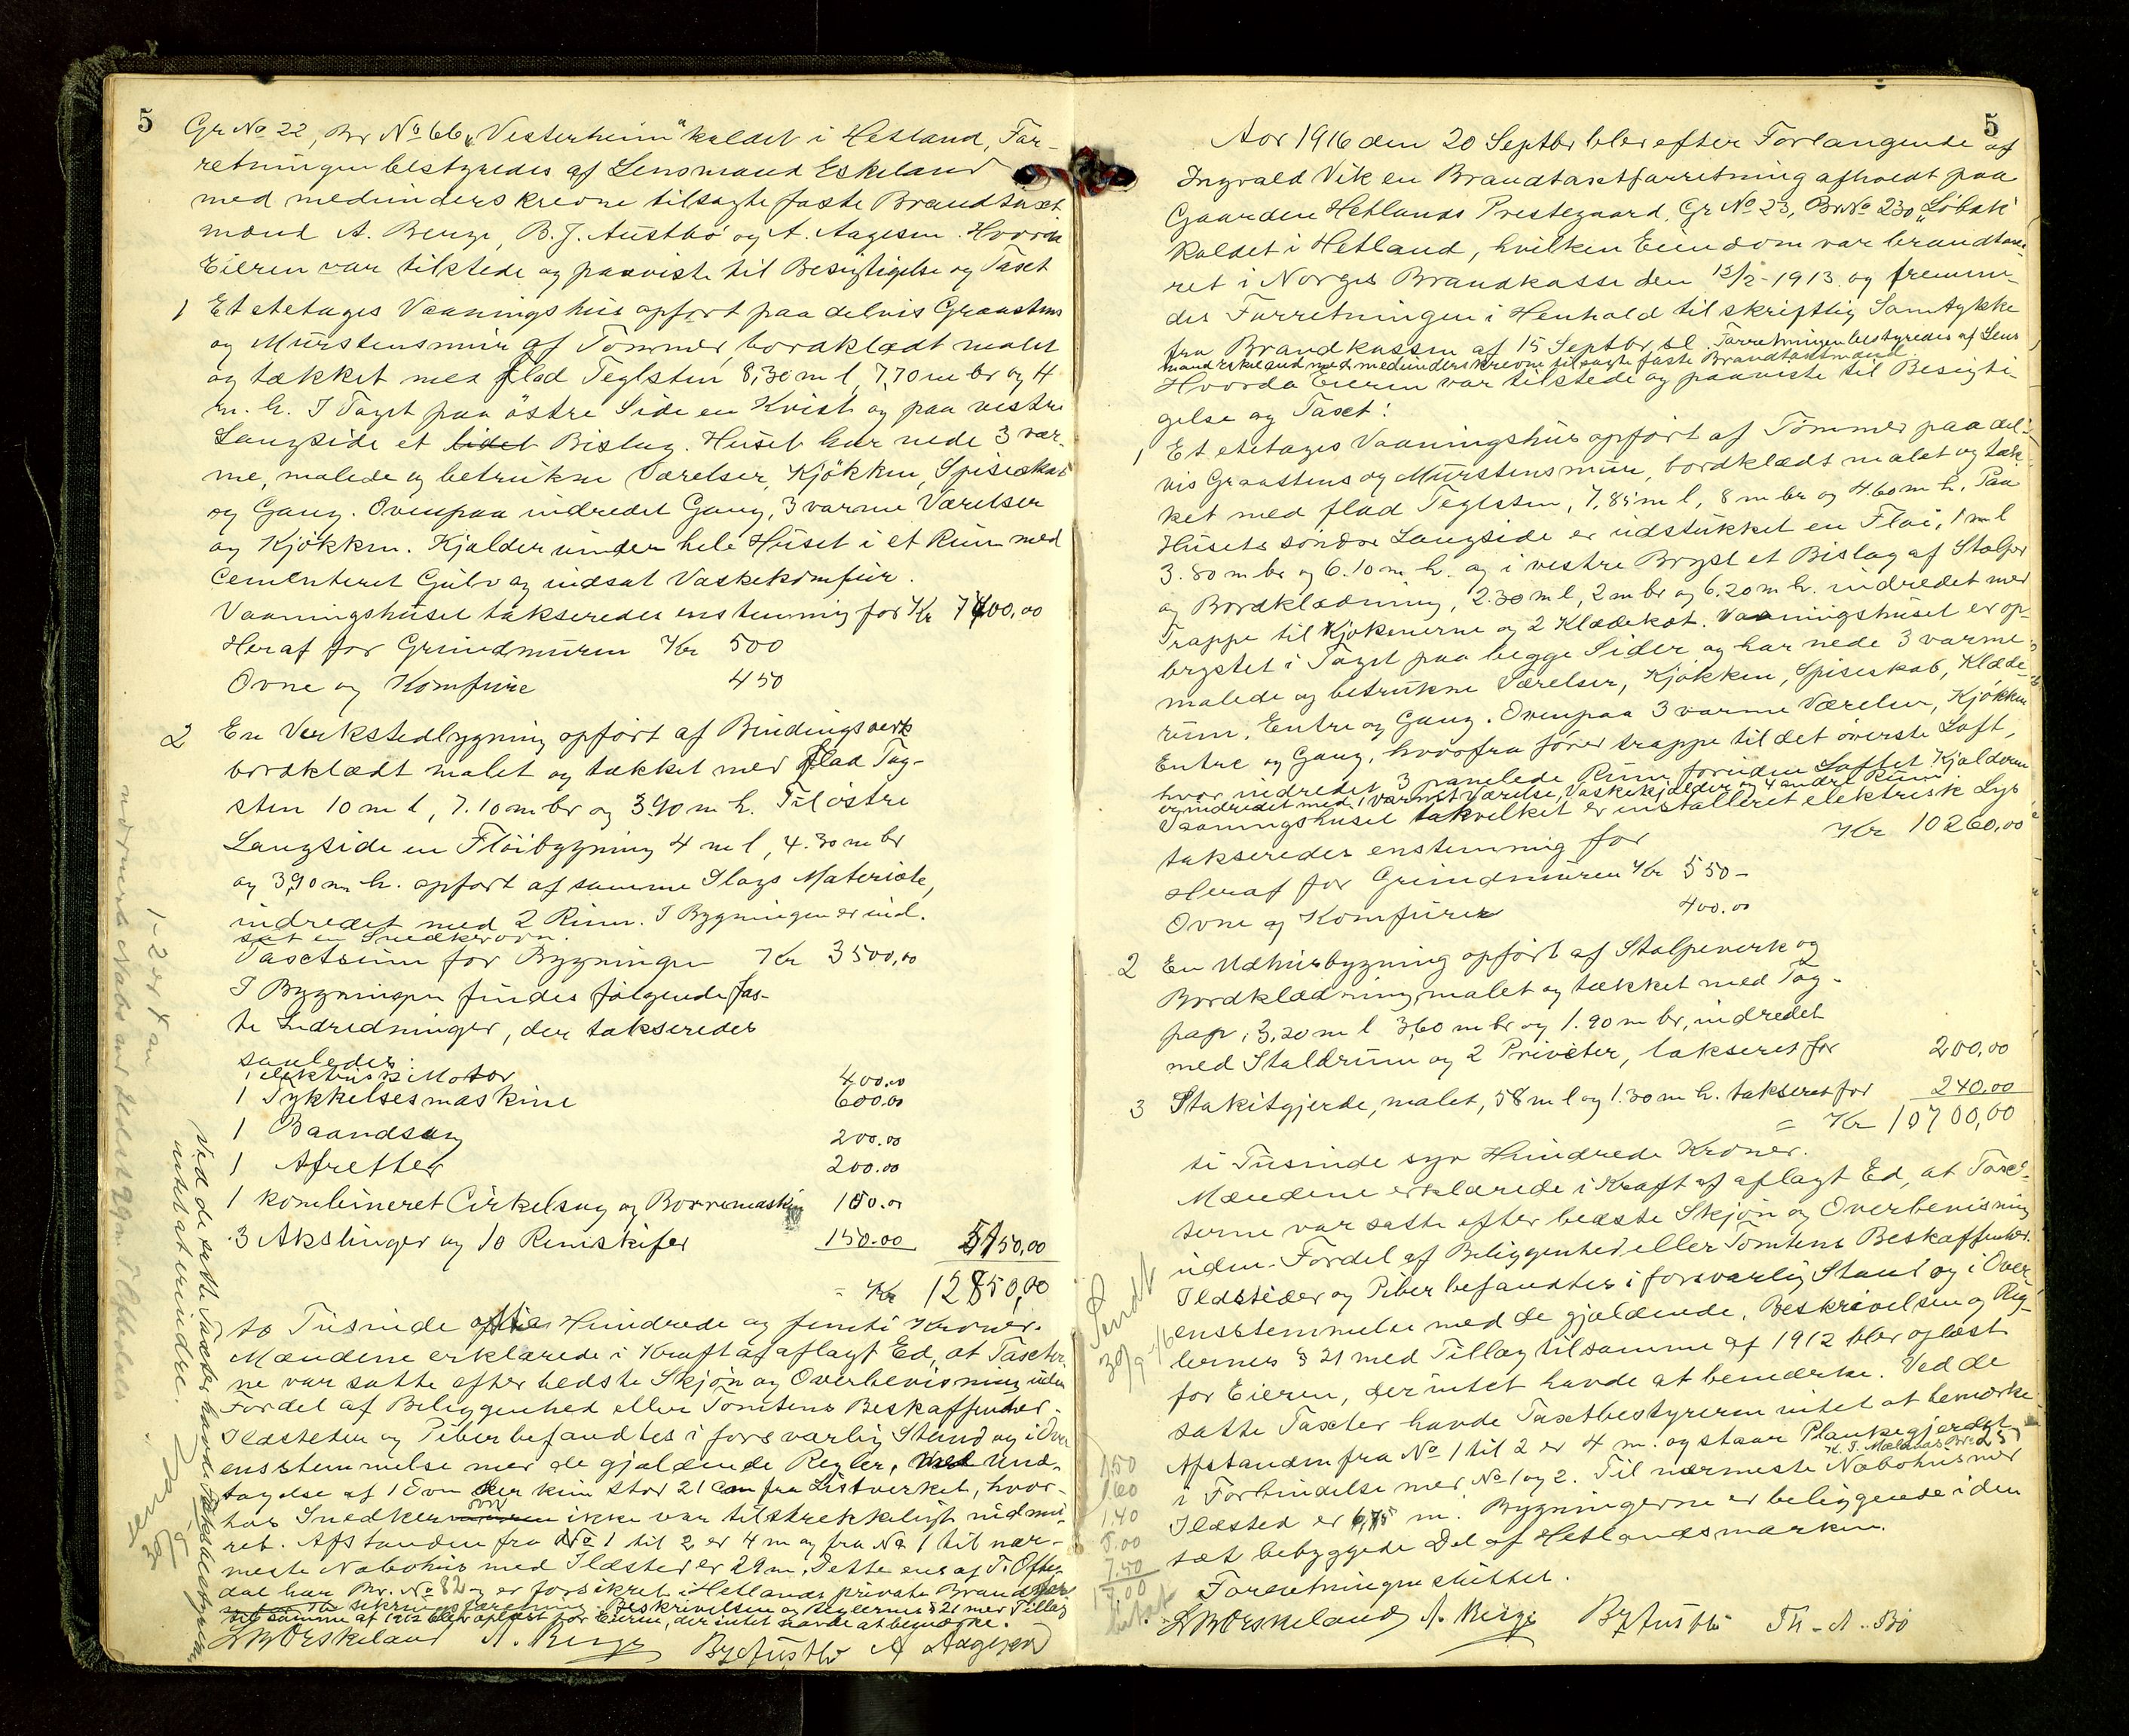 5
Gr No 22, Br No 66 „Vesterheim" kaldet i Hetland, For-
retningen bestyredes af Lensmand Eskeland
med medunderskrevne tilsagte faste Brandtaxt
mænd A. Berge, B.J. Austbö og A. Aagesen. Hvorda
Eieren var tilstede og paaviste til Besigtigelse og Taxt
1 Et etetages Vaaningshus opført paa delvis Graastens
og Murstensmur af Tömmer, bordklædt malet
og tækket med flad Teglsten 8,30 m l, 7,70 m br og 4
m. h. I Taget paa östre Side en Kvist og paa vestre
Langside et lidet Bislag. Huset har nede 3 var-
me, malede og betrukne Værelser, Kjökken, Spiseskab
og Gang. Ovenpaa indredet Gang, 3 varme Værelser
og Kjökken. Kjelder under hele Huset i et Rum med
Cementeret Gulv og indsat Vaskekomfur.
Vaaningshuset takseredes enstemmig for Kr 7700,00
Heraf for Grundmuren Kr 500
Ovne og Komfure 450
2 En Verkstedbygning opfört af Bindingsverk
bordklædt malet og tækket med flad Tag-
sten 10 m l, 7.10 m br og 3.90 m h. Til östre
Langside en Flöibygning 4 m l, 4.30 m br
og 3,90 m h. opfört af samme Slags Materiale,
indredet med 2 Rum. I Bygningen er ind-
sat en Snedkerovn.
Taxtsum for Bygningen Kr 3500,00
I Bygningen findes fölgende fas-
te Indredninger, der takseredes
saaledes:
1 elektrisk Motor 400.00
1 Tykkelsesmaskine 600.00
1 Baandsag 200.00
1 Afretter 200.00
1 kombineret Cirkelsag og Borremaskin 100.00
3 Akslinger og 10 Remskifer 150.00 5150,00
= Kr 12850,00
to Tusinde otte Hundrede og femti Kroner.
Mændene erklærede i Kraft af aflagt Ed, at Taxter-
ne var satte efter bedste Skjön og Overbevisning uden
Fordel af Beliggenhed eller Tomtens Beskaffenhed.
Ildsteder og Piber befandtes i forsvarlig Stand og i Over
ensstemmelse med de gjældende Regler, med Und-
tagelse af 1 Ovn der kun stod 21 cm fra Listverket, hvor-
hos Snedkerovnen ikke var tilstrekkeligt indmu-
ret. Afstanden fra No 1 til 2 er 4 m og fra No 1 til nær-
meste Nabohus med Ildsted er 29 m. Dette eies af T. Ofte-
dal har Br. No 82 og er forsikret i Hetlands private Brandfor
sikringsforening. Beskrivelsen og Reglernes § 21 med Tillæg
til samme af 1912 blev oplæst for Eieren, der intet havde at bemærke.
LWEskeland A. Berge BJAustbö A Aagesen
Ved de satte Taxter havde Taksbestyreren
intet at erindre.
Sendt
30/9
1-2 er 4 m
nærmeste Nabo med Ildsted 29 m T Oftedals
5
Aar 1916 den 20 Septbr blev efter Forlangende af
Ingvald Vik en Brandtaxtforretning afholdt paa
Gaarden Hetlands Prestegaard, Gr No 23, Br No 230 „Löbak"
kaldet i Hetland, hvilken Eiendom var brandtaxe-
ret i Norges Brandkasse den 12/2-1913 og fremme-
des Forretningen i Henhold til skriftlig Samtykke
fra Brandkassen af 15 Septbr sl. Forretningen bestyredes af Lens
mand Eskeland med medunderskrevne tilsagte faste Brandtaxtmænd
Hvorda Eieren var tilstede og paaviste til Besigti-
gelse og Taxt:
1 Et etetages Vaaningshus opfört af Tömmer paa del-
vis Graastens og Murstensmur, bordklædt malet og tæk-
ket med flad Teglsten, 7,85 m l, 8 m br og 4.60 m h. Paa
Husets söndre Langside er udstukket en Flöi, 1 m l
3.80 m br og 6.10 m h. og i vestre Bryst et Bislag af Stolper
og Bordklædning, 2.30 m l, 2 m br og 6.20 m h. indredet med
Trappe til Kjöknerne og 2 Klædekot. Vaaningshuset er op-
brystet i Taget paa begge Sider og har nede 3 varme
malede og betrukne Værelser, Kjökken, Spiseskab, Klæde-
rum, Entre og Gang. Ovenpaa 3 varme Værelser, Kjökken
Entre og Gang, hvorfra förer trappe til det överste Loft,
hvor indredet 3 panelede Rum foruden Loftet. Kjelderen
er indredet med 1 varmt Værelse, Vaskekjælder og 4 andre Rum
Vaaningshuset i hvilket er installeret elektrisk Lys
takseredes enstemmig for Kr 10260,00
Heraf for Grundmuren Kr 550-
Ovne og Komfurer 400.00
2 En Udhusbygning opfört af Stolpeverk og
Bordklædning, malet og tækket med Tag-
pap, 3,20 m l 3,60 m br og 1.90 m br, indredet
med Staldrum og 2 Priveter, takseret for 200,00
3 Stakitgjerde, malet, 58 m l og 1.30 m h. takseret for 240.00
= Kr 10700,00
ti Tusinde syv Hundrede Kroner.
Mændene erklærede i Kraft af aflagt Ed, at Taxt-
terne var satte efter bedste Skjön og Overbevisning
uden Fordel af Beliggenhed eller Tomtens Beskaffenhed.
Ildsteder og Piber befandtes i forsvarlig Stand og i Over-
ensstemmelse med de gjældende. Beskrivelsen og Reg-
lernes § 21 med Tillæg til samme af 1912 blev oplæst
for Eieren, der intet havde at bemærke. Ved de
satte Taxter havde Taxtbestyreren intet at bemærke
Afstanden fra No 1 til 2 er 4 m. og staar Plankegjerdet
i Forbindelse med No 1 og 2. Til nærmeste Nabohus med
Ildsted er 6,75 m. Bygningerne er beliggende i den
tæt bebyggede Del af Hetlandsmarken.
Forretningen sluttet.
LWEskeland A. Berge BJAustbö Th. A. Bö
Sendt
30/9-16
1,50
1.60
1.40
5.00
7.50
17.00
betalt